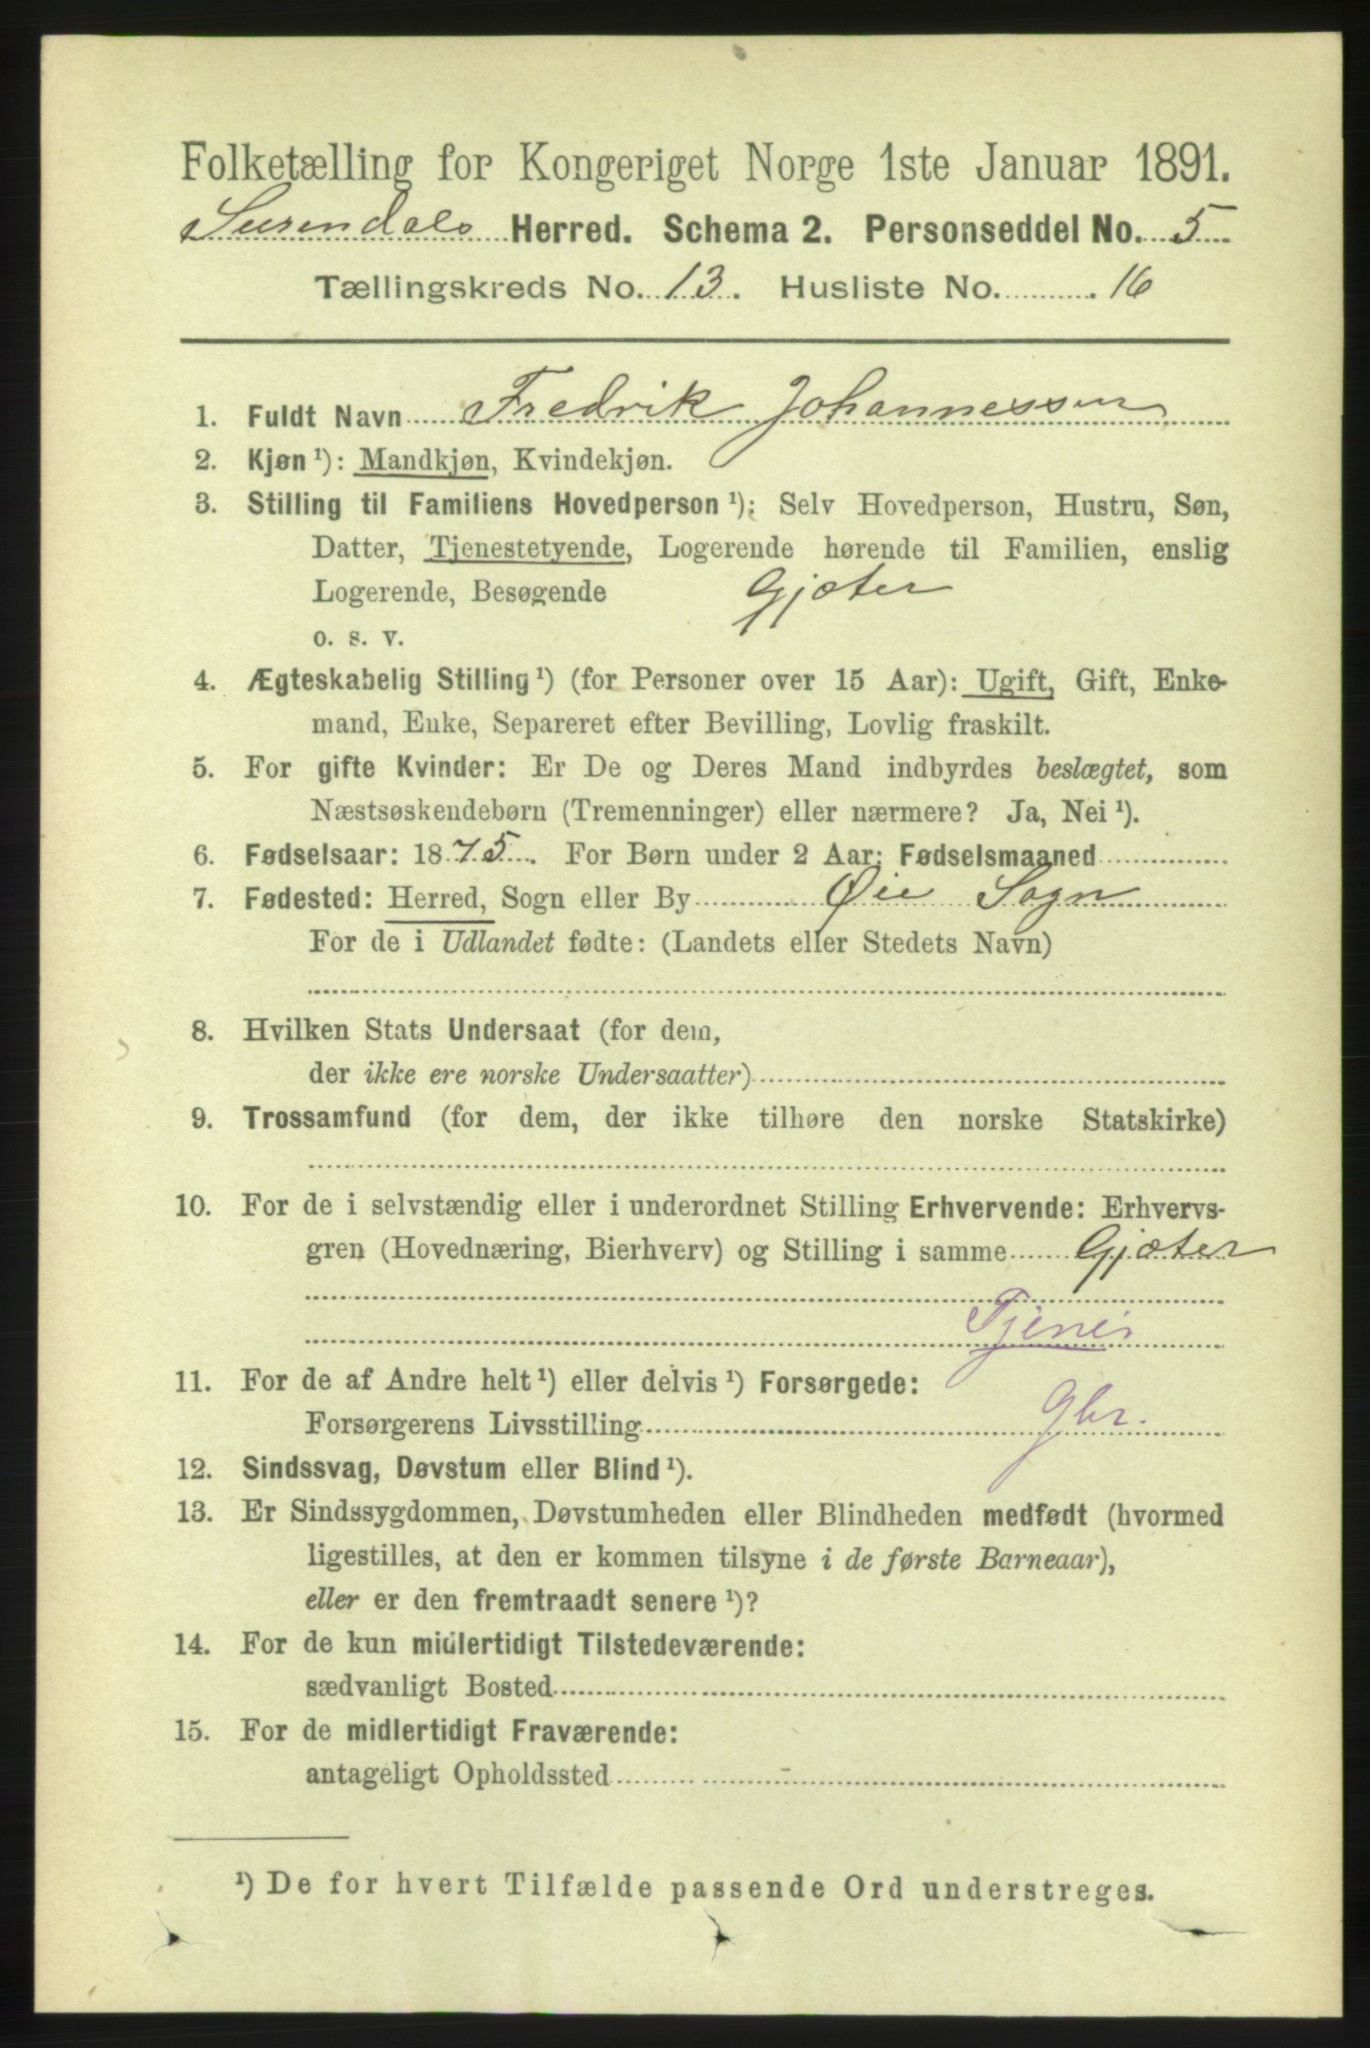 Folketælling for Kongeriget Norge 1ste Januar 1891.
Surendals Herred. Schema 2. Personseddel No. 5
Tællingskreds No. 13. Husliste No. 16
1. Fuldt Navn Fredrik Johannessen
2. Kjøn ¹): Mandkjøn, Kvindekjøn.
3. Stilling til Familiens Hovedperson ¹): Selv Hovedperson, Hustru, Søn,
Datter, Tjenestetyende, Logerende hørende til Familien, enslig
Logerende, Besøgende Gjæter
o. s. v.
4. Ægteskabelig Stilling ¹) (for Personer over 15 Aar): Ugift, Gift, Enke-
mand, Enke, Separeret efter Bevilling, Lovlig fraskilt.
5. For gifte Kvinder: Er De og Deres Mand indbyrdes beslægtet, som
Næstsøskendebørn (Tremenninger) eller nærmere? Ja, Nei ¹).
6. Fødselsaar: 1875. For Børn under 2 Aar: Fødselsmaaned
7. Fødested: Herred, Sogn eller By Øie Sogn
For de i Udlandet fødte: (Landets eller Stedets Navn)
8. Hvilken Stats Undersaat (for dem,
der ikke ere norske Undersaatter)
9. Trossamfund (for dem, der ikke tilhøre den norske Statskirke)
10. For de i selvstændig eller i underordnet Stilling Erhvervende: Erhvervs-
gren (Hovednæring, Bierhverv) og Stilling i samme Gjæter
Tjener
11. For de af Andre helt ¹) eller delvis ¹) Forsørgede:
Forsørgerens Livsstilling Gbr.
12. Sindssvag, Døvstum eller Blind ¹).
13. Er Sindssygdommen, Døvstumheden eller Blindheden medfødt (hvormed
ligestilles, at den er kommen tilsyne i de første Barneaar),
eller er den fremtraadt senere ¹)?
14. For de kun midlertidigt Tilstedeværende:
sædvanligt Bosted
15. For de midlertidigt Fraværende:
antageligt Opholdssted
¹) De for hvert Tilfælde passende Ord understreges.